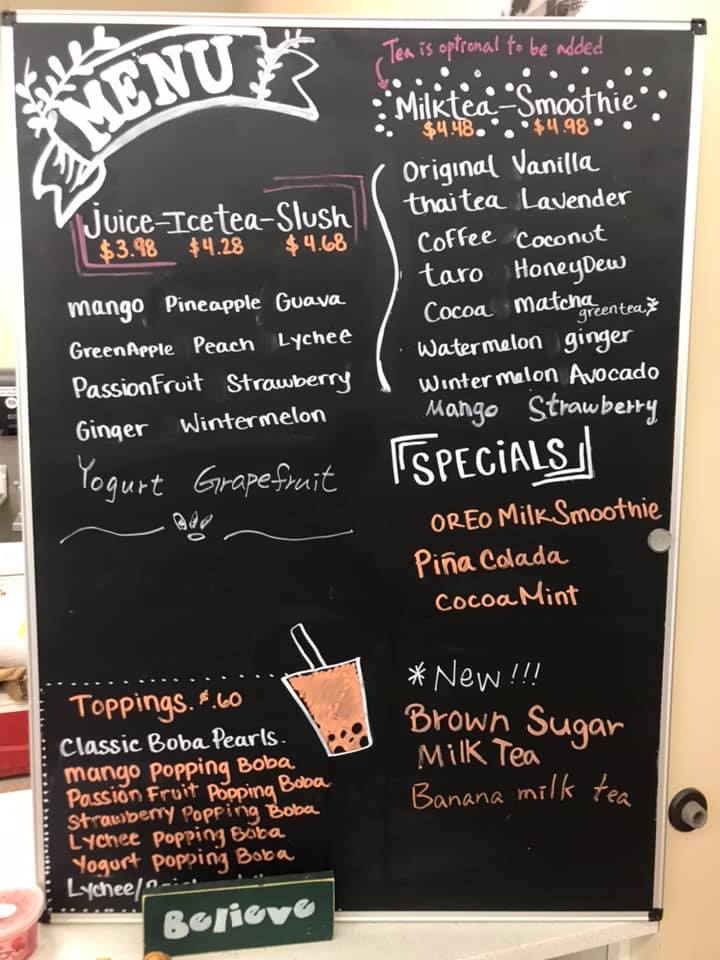 MENU
Juice-Icetea-Slush
$3.98 $4.28 $4.68
mango Pineapple Guava
GreenApple Peach Lychee
PassionFruit Strawberry
Ginger Wintermelon
Yogurt Grapefruit
Tea is optional to be added
Milktea-Smoothie
$4.48 $4.98
Original Vanilla
thaitea Lavender
Coffee Coconut
taro HoneyDew
Cocoa matcha
greentea*
Watermelon ginger
Wintermelon Avocado
Mango Strawberry
SPECiALS
OREO Milk Smoothie
Piña Colada
Cocoa Mint
*New!!!
Brown Sugar
Milk Tea
Banana milk tea
Toppings. $.60
Classic Boba Pearls.
mango Popping Boba
Passion Fruit Popping Boba
Strawberry Popping Boba
Lychee Popping Boba
Yogurt Popping Boba
Lychee/
Believe